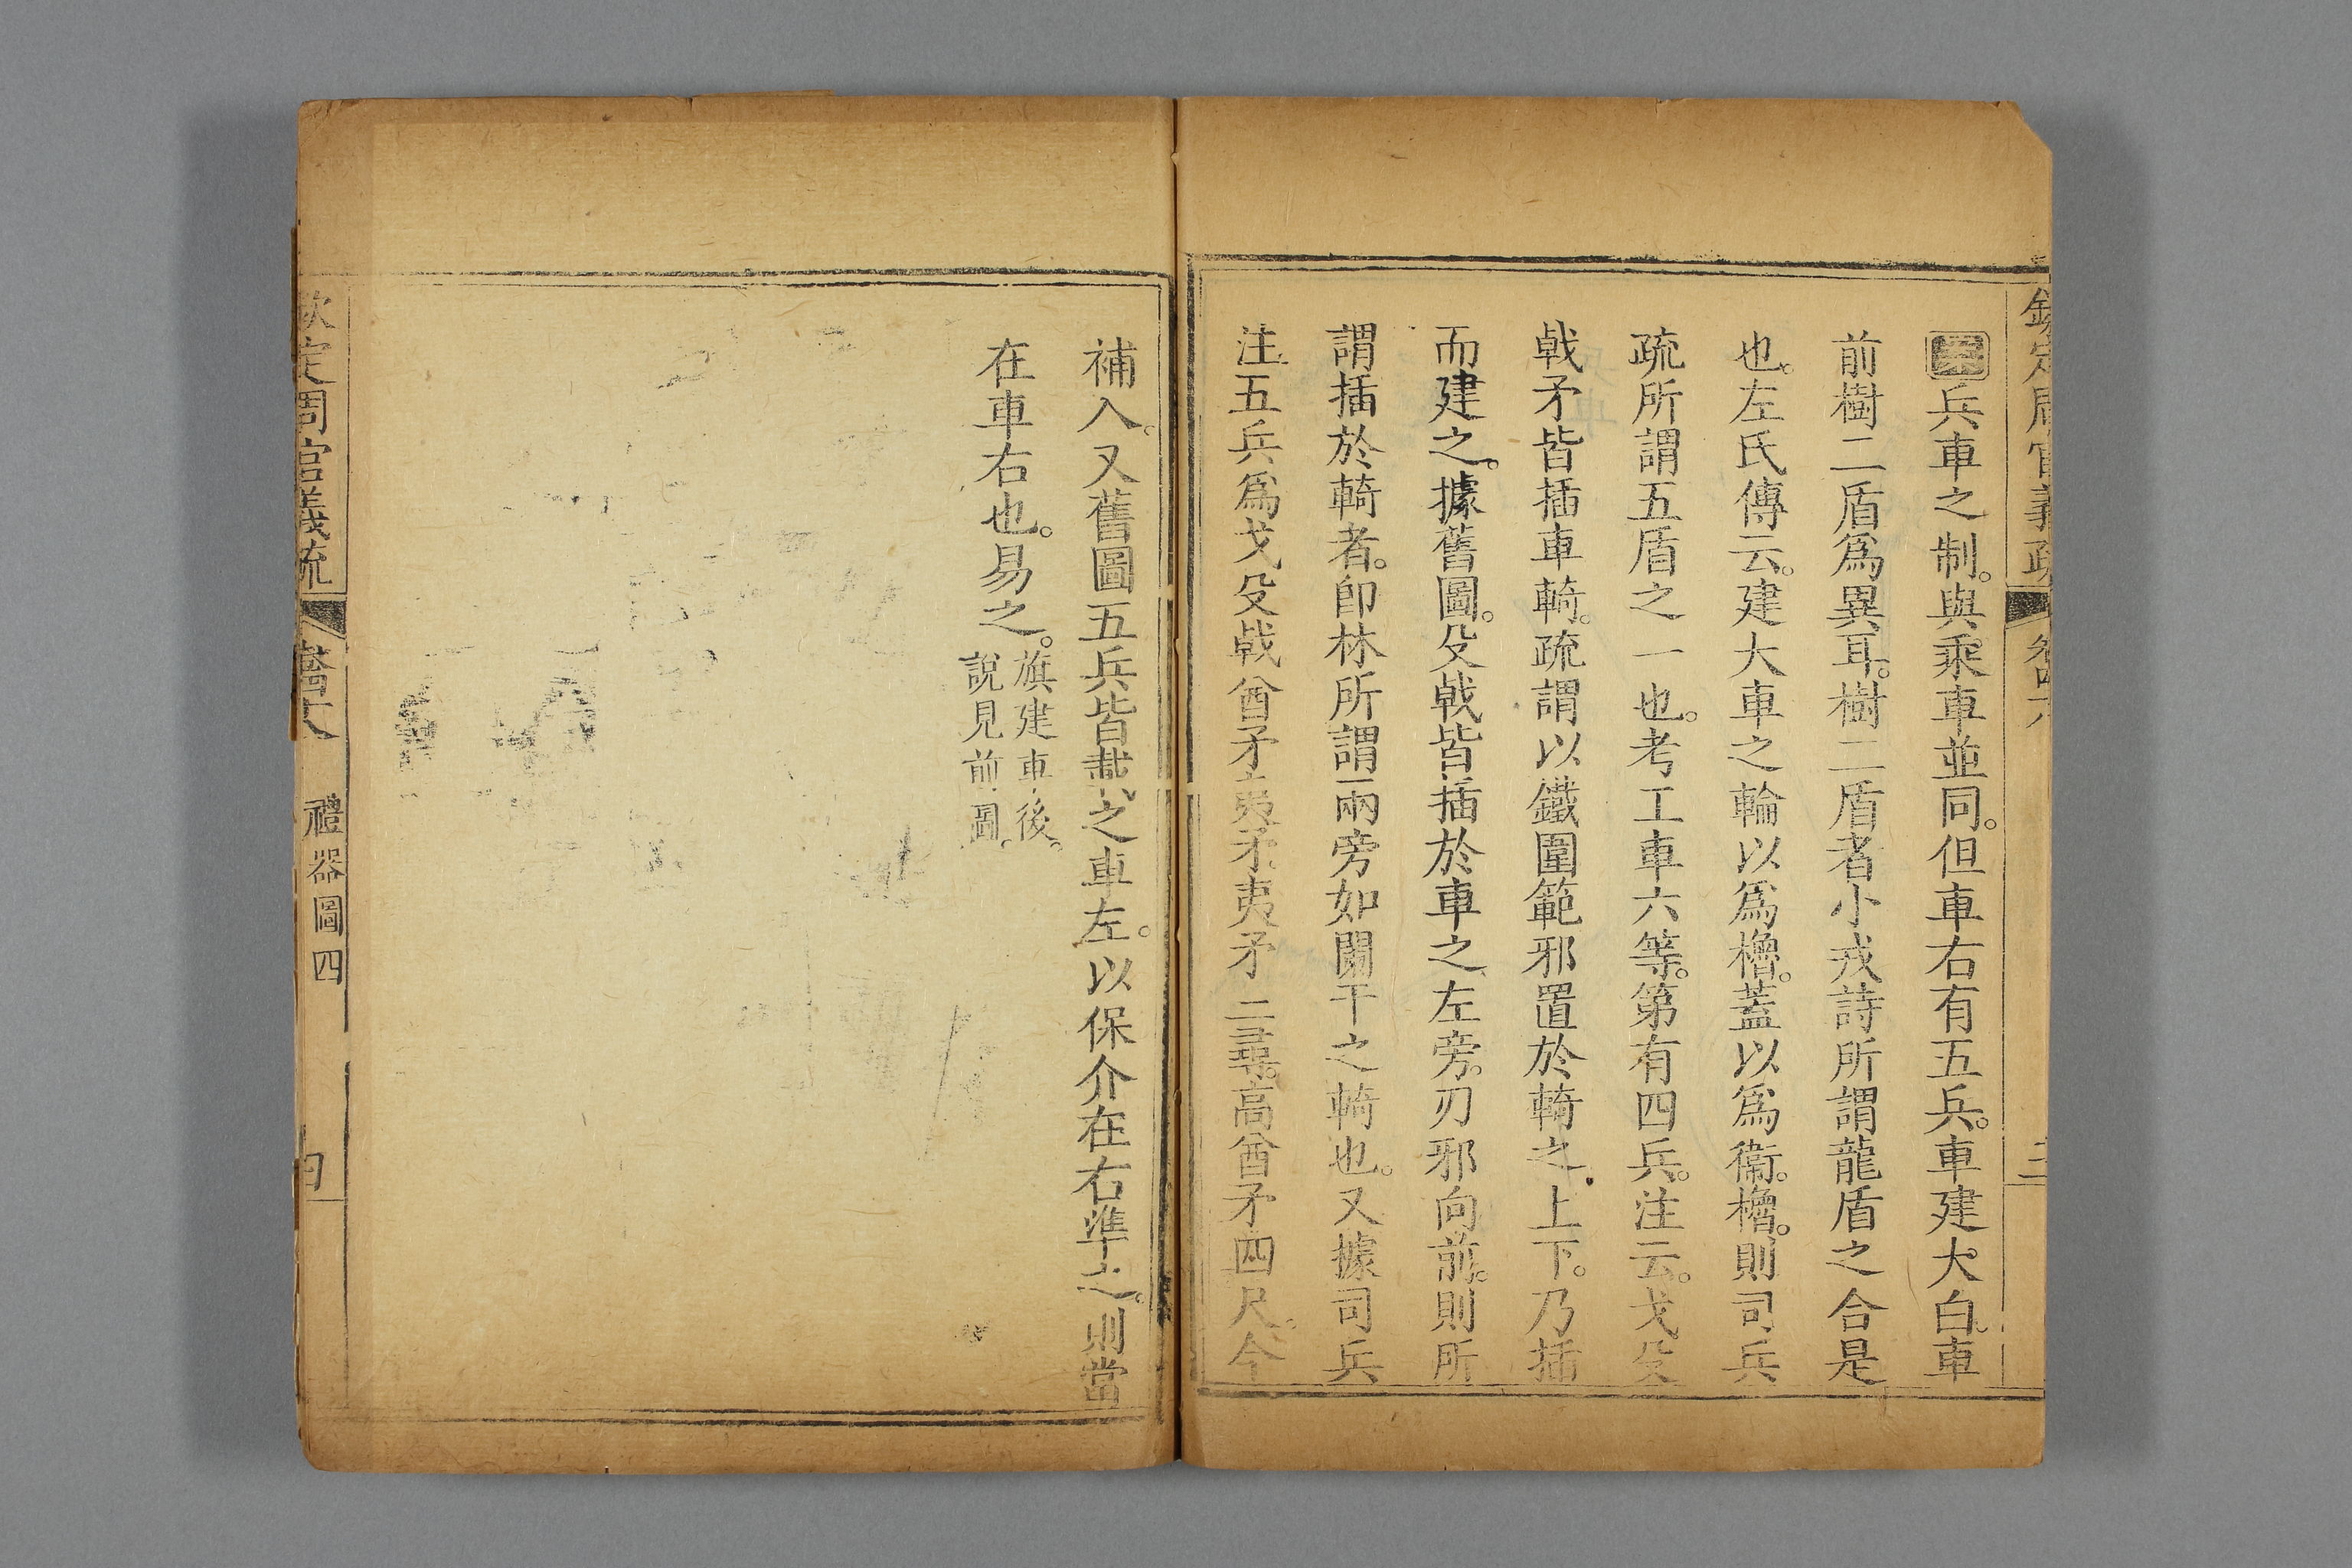 欽定周官義疏
案兵車之制。與乘車並同。但車右有五兵。車建大白。車
前樹二盾爲異耳。樹二盾者小戎詩所謂龍盾之合是
也。左氏傳云。建大車之輪以爲櫓。蓋以爲衞。櫓。則司兵
疏所謂五盾之一也。考工車六等。第有四兵。注云。戈殳
戟矛皆插車輢。疏謂以鐵圍範邪置於輢之上下。乃插
而建之。據舊圖。殳戟皆插於車之左旁。刃邪向前。則所
謂插於輢者。卽林所謂兩旁如闌干之輢也。又據司兵
注五兵爲戈殳戟酋矛夷矛夷矛二尋。高酋矛四尺。今
補入。又舊圖五兵皆載之車左。以保介在右準之。則當
在車右也。易之。旗建車後。
說見前圖。
欽定周官義疏
禮器圖四